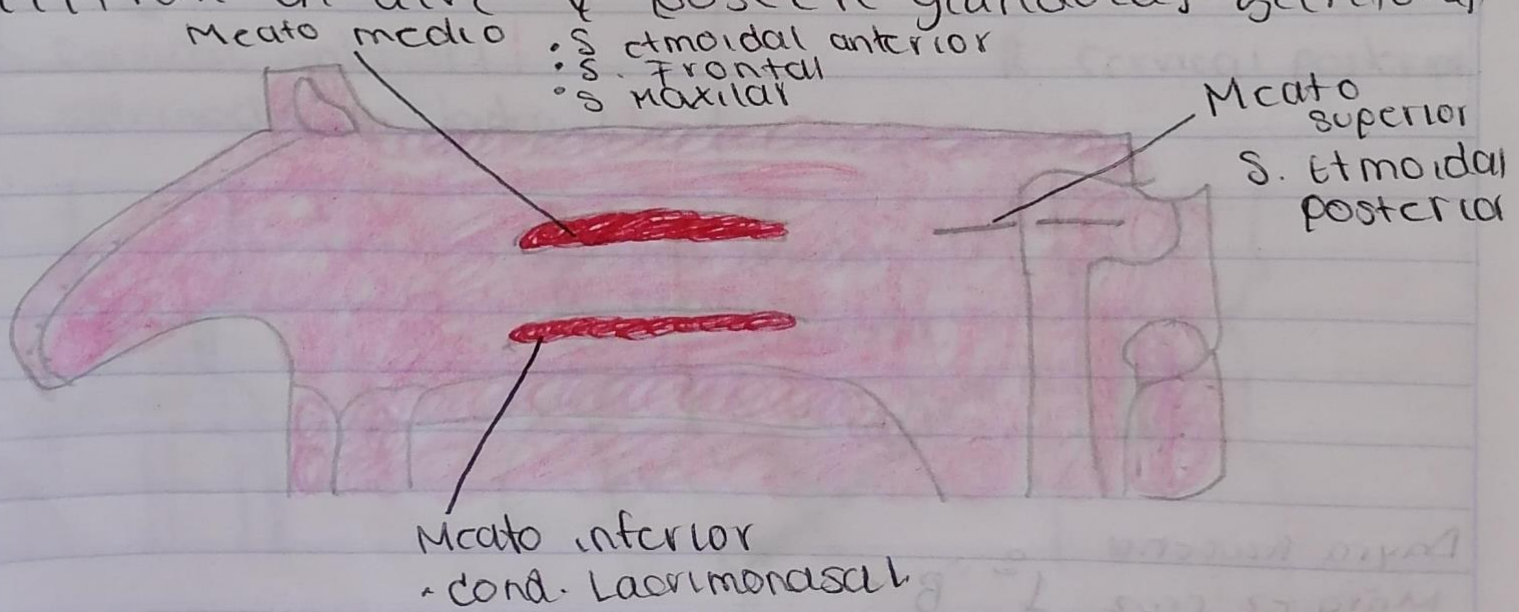 glándulas
Meato medio
• S etmoidal anterior
• S. Frontal
• S Maxilar
Meato
superior
S. Etmoidal
posterior
Meato inferior
- cond. Lacrimonasal